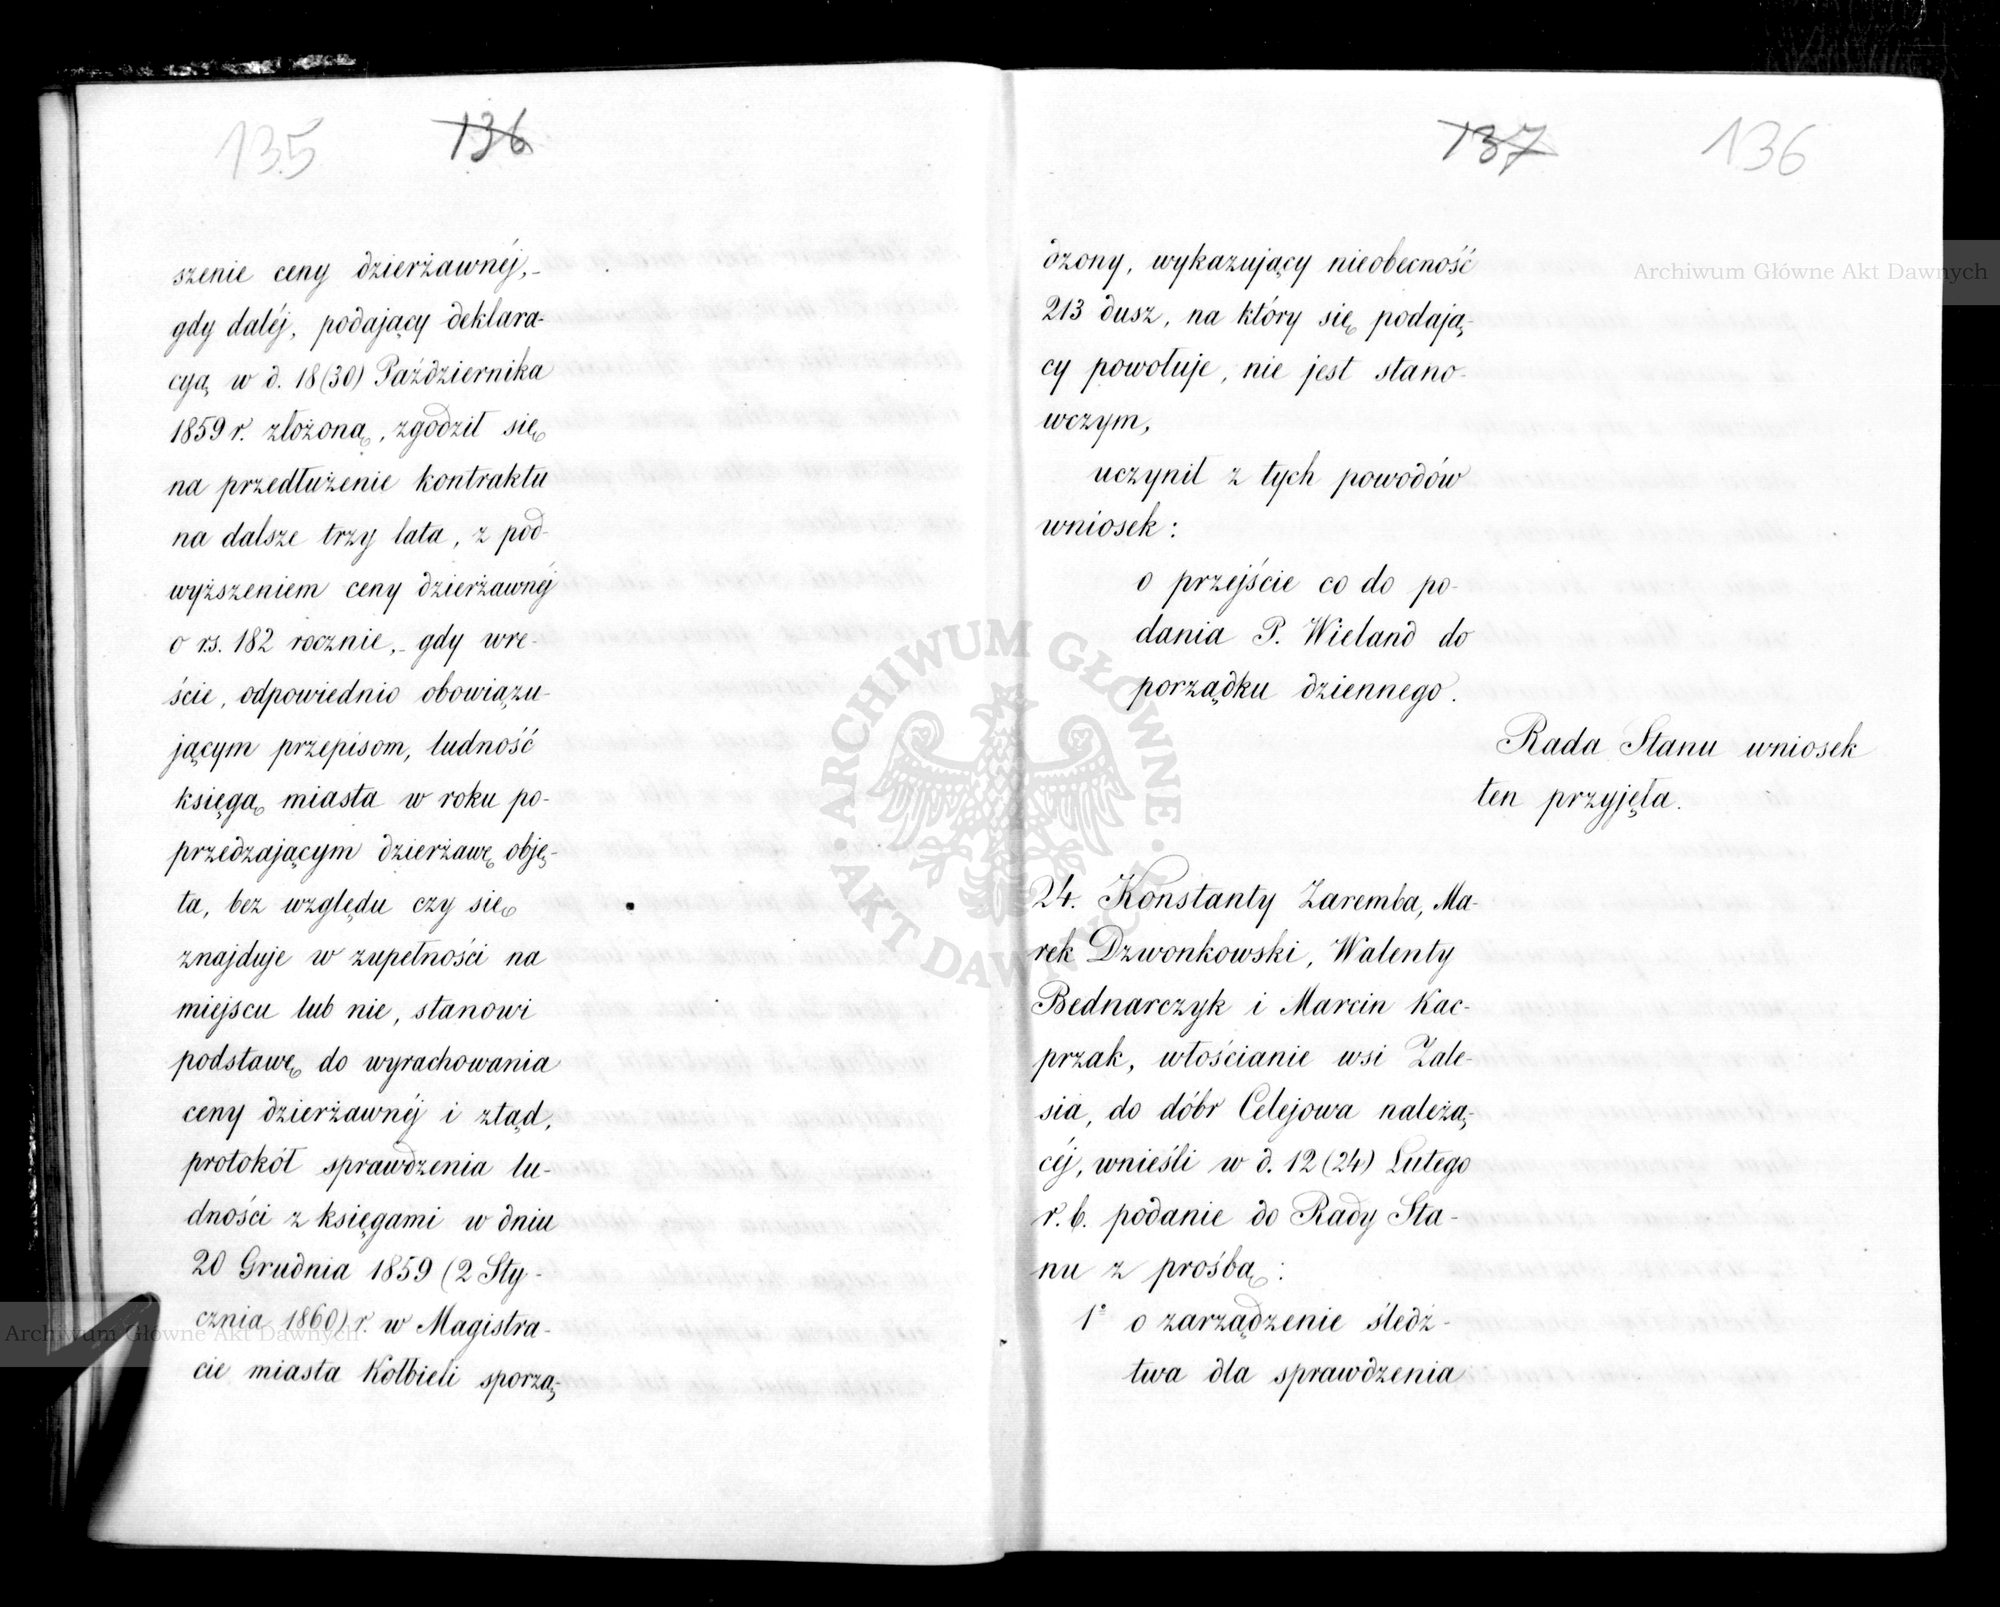 135 136
szenie ceny dzierżawnéj,_
gdy daléj, podający deklara-
cyą w d. 18 (30) Października
1859 r. złożoną, zgodził się
na przedłużenie kontraktu
na dalsze trzy lata, z pod-
wyższeniem ceny dzierżawnéj
o rs. 182 rocznie,_ gdy wre-
ście, odpowiednio obowiązu-
jącym przepisom, ludność
księgą miasta w roku po-
przedzającym dzierżawę obję-
ta, bez względu czy się
znajduje w zupełności na
miejscu lub nie, stanowi
podstawę do wyrachowania
ceny dzierżawnéj i ztąd,
protokół sprawdzenia lu-
dności z księgami w dniu
20 Grudnia 1859 (2 Sty-
cznia 1860) r. w Magistra-
cie miasta Kołbieli sporzą-
137 136
dzony, wykazujący nieobecność
213 dusz, na który się podają-
cy powołuje, nie jest stano-
wczym,
uczynił z tych powodów
wniosek:
o przejście co do po-
dania P. Wieland do
porządku dziennego.
Rada Stanu wniosek
ten przyjęła.
24. Konstanty Zaremba, Ma-
rek Dzwonkowski, Walenty
Bednarczyk i Marcin Kac-
przak, włościanie wsi Zale-
sia, do dóbr Celejowa należą-
céj, wnieśli w d. 12 (24) Lutego
r. b. podanie do Rady Sta-
nu z prośbą:
1° o zarządzenie śledz-
twa dla sprawdzenia
Archiwum Główne Akt Dawnych
Archiwum Główne Akt Dawnych
ARCHIWUM GŁÓWNE
AKT DAWNYCH